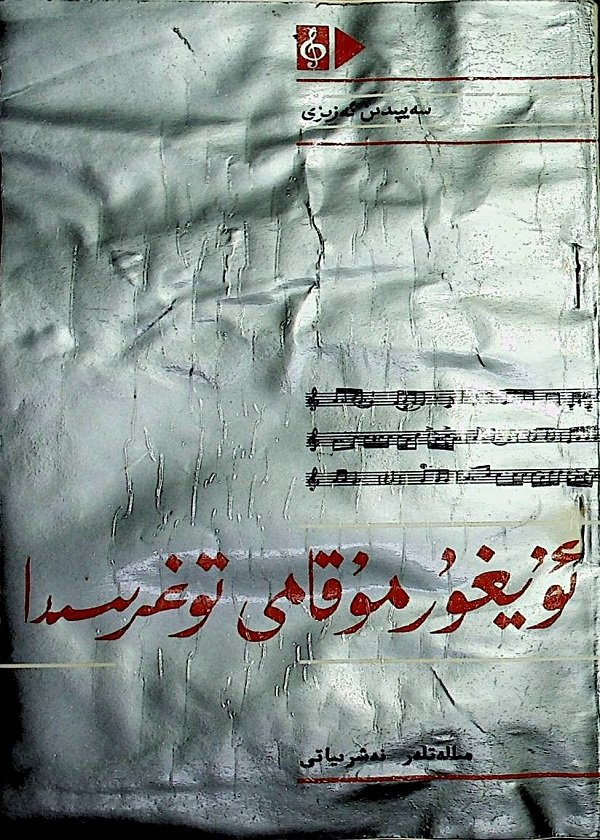 سەيپىدىن ئەزىزى
ئۇيغۇر مۇقامى توغرىسىدا
مىللەتلەر نەشرىياتى